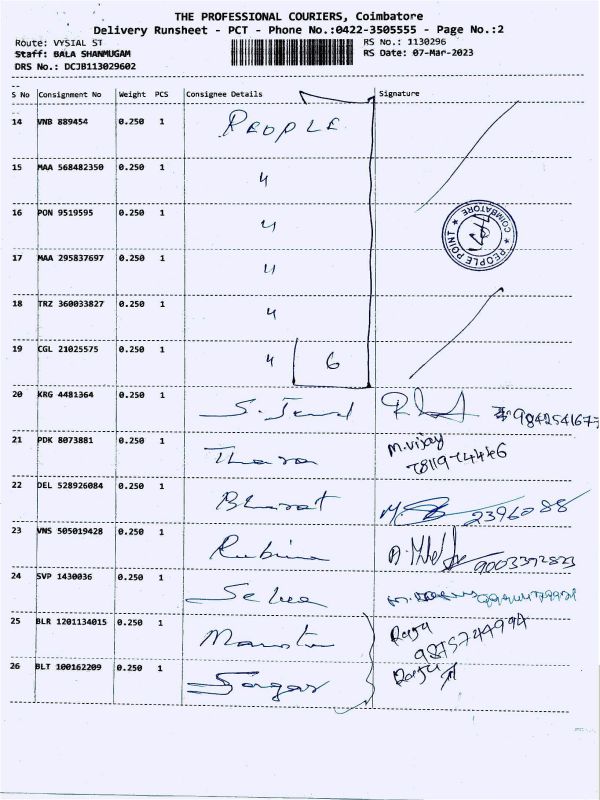 THE PROFESSIONAL COURIERS, Coimbatore
Delivery Runsheet - PCT - Phone No.:0422-3505555 - Page No.:2
Route: VYSIAL ST
RS No.: 1130296
Staff: BALA SHANMUGAM
RS Date: 07-Mar-2023
DRS No.: DCJB113029602
S No Consignment No Weight PCS Consignee Details Signature
14 VNB 889454 0.250 1 PEOPLE
15 MAA 568482350 0.250 1 "
16 PON 9519595 0.250 1 "
PEOPLE POINT ★ COIMBATORE ★
17 MAA 295837697 0.250 1 "
18 TRZ 360033827 0.250 1 "
19 CGL 21025575 0.250 1 " 6
20 KRG 4481364 0.250 1 9842541677
21 PDK 8073881 0.250 1 Thara M.vijay
22 DEL 528926084 0.250 1 Bharat 2396088
23 VNS 505019428 0.250 1 Rubina 9003392823
24 SVP 1430036 0.250 1 Selva
25 BLR 1201134015 0.250 1 Raja
9875744994
26 BLT 100162209 0.250 1 Raja